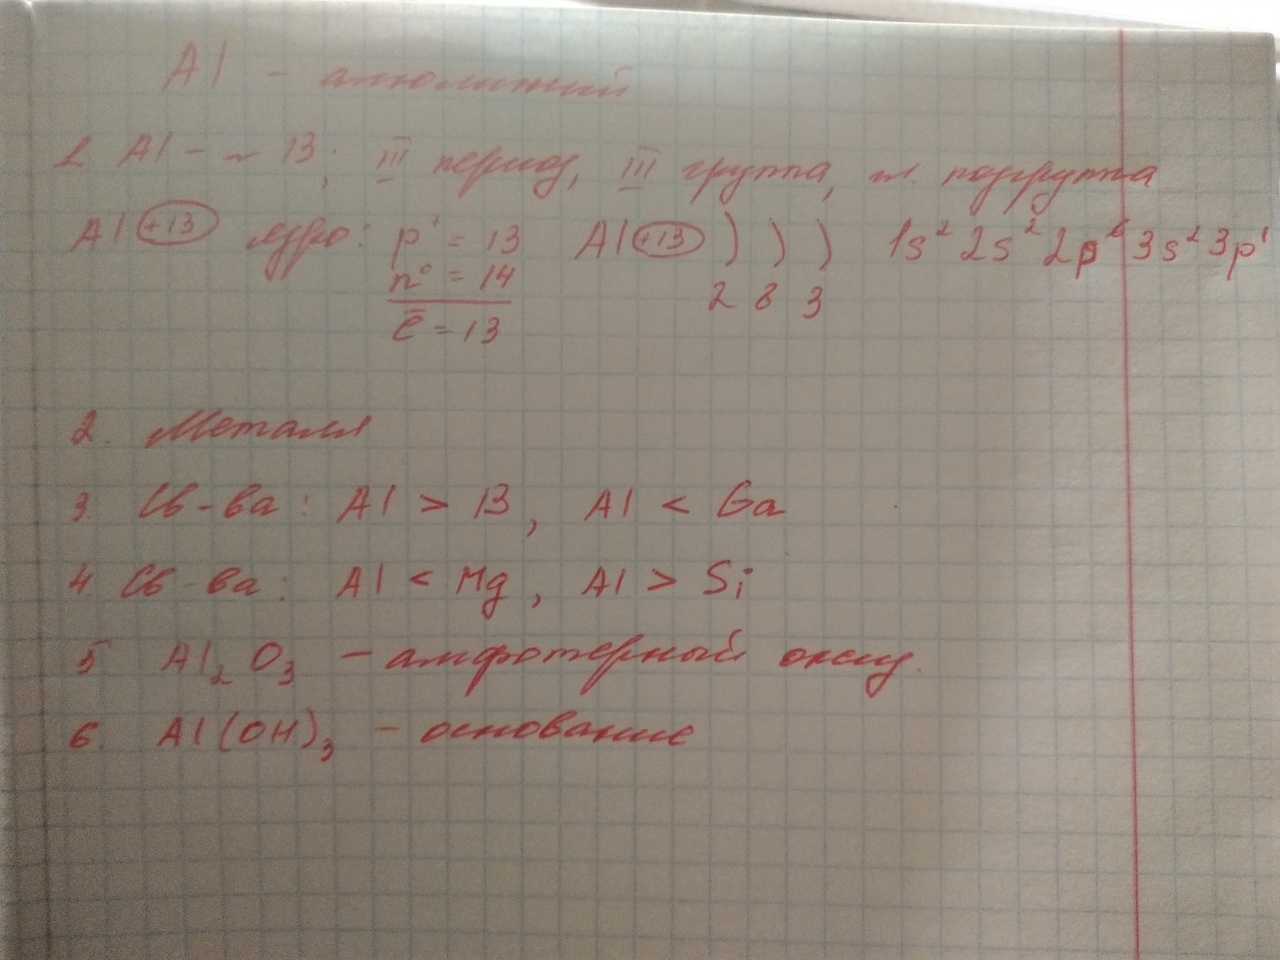 Al - алюминий
1. Al - № 13; III период, III группа, гл. подгруппа
Al +13 ядро: p⁺ = 13 Al +13 ) ) ) 1s² 2s² 2p⁶ 3s² 3p¹
n⁰ = 14 2 8 3
e̅ = 13
2. Металл
3. Св-ва: Al > B, Al < Ga
4 Св-ва: Al < Mg, Al > Si
5 Al₂O₃ - амфотерный оксид.
6. Al(OH)₃ - основание